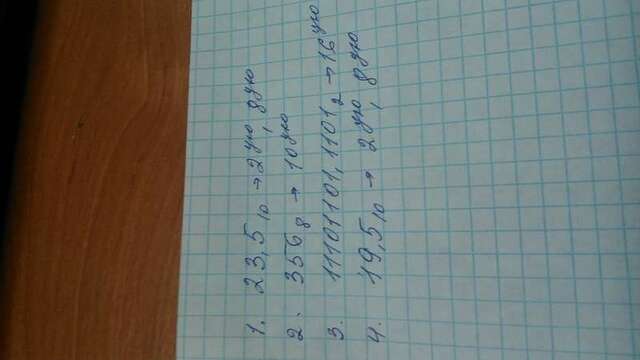 1. 23,5₁₀ → 2ую, 8ую
2. 356₈ → 10ую
3. 11101101,1101₂ → 16ую
4. 19,5₁₀ → 2ую, 8ую